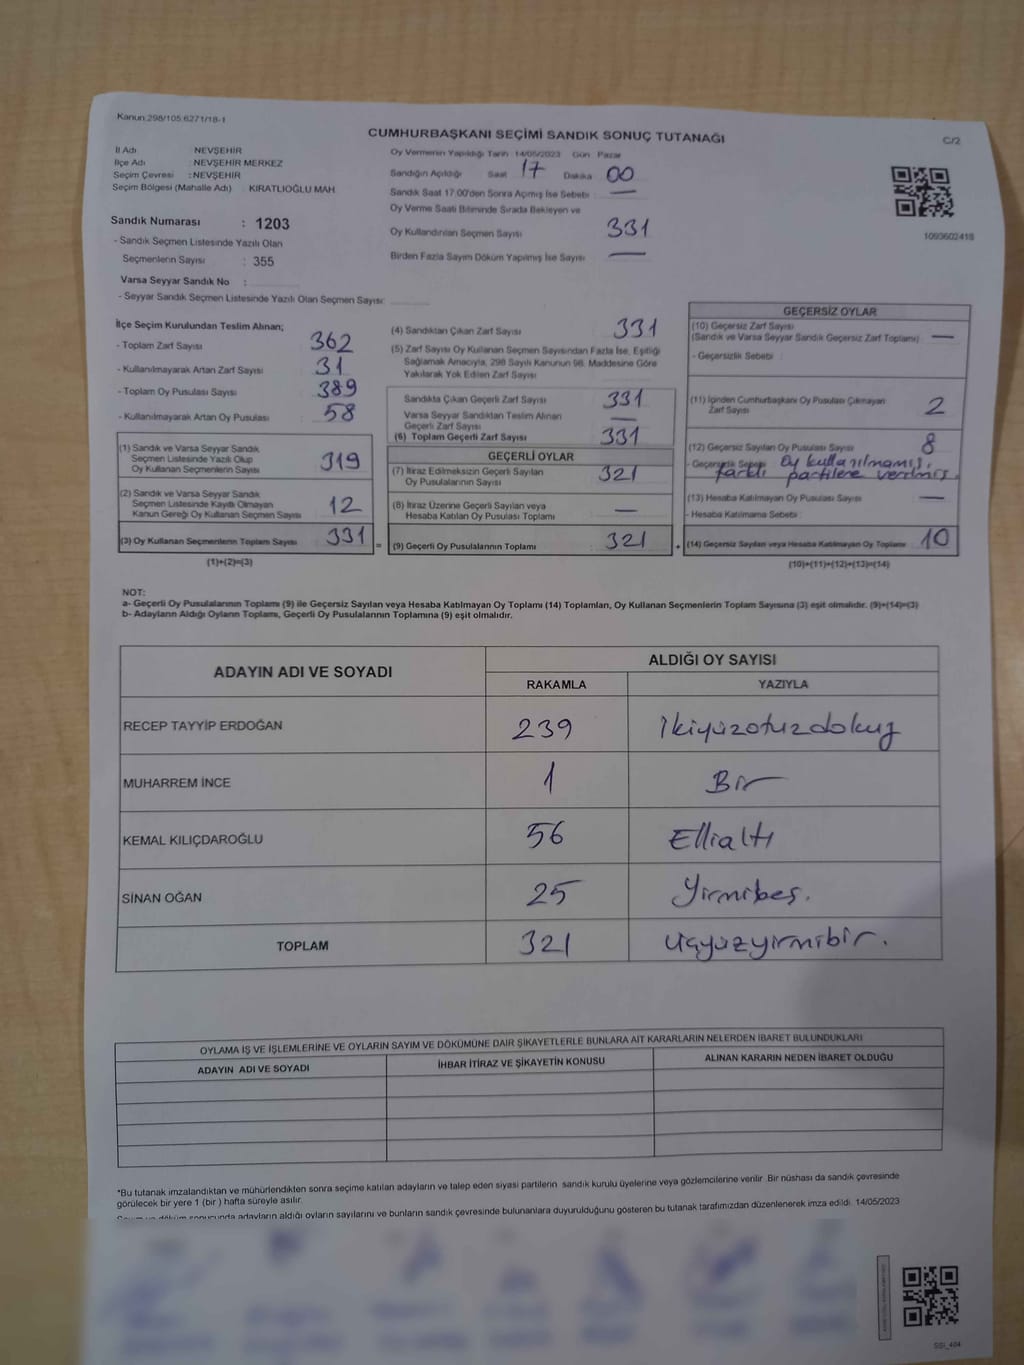 Kanun:298/105.6271/18-1
CUMHURBAŞKANI SEÇİMİ SANDIK SONUÇ TUTANAĞI
C/2
İl Adı : NEVŞEHİR
İlçe Adı : NEVŞEHİR MERKEZ
Seçim Çevresi : NEVŞEHİR
Seçim Bölgesi (Mahalle Adı) KIRATLIOĞLU MAH
Oy Vermenin Yapıldığı Tarih 14/05/2023 Gün Pazar
Sandığın Açıldığı Saat 17 Dakika 00
Sandık Saat 17:00'den Sonra Açmış İse Sebebi : —
Oy Verme Saati Bitiminde Sırada Bekleyen ve
Oy Kullandırılan Seçmen Sayısı 331
Birden Fazla Sayım Döküm Yapılmış İse Sayısı —
1093602418
Sandık Numarası : 1203
- Sandık Seçmen Listesinde Yazılı Olan
Seçmenlerin Sayısı : 355
Varsa Seyyar Sandık No :
- Seyyar Sandık Seçmen Listesinde Yazılı Olan Seçmen Sayısı:
İlçe Seçim Kurulundan Teslim Alınan;
- Toplam Zarf Sayısı 362
- Kullanılmayarak Artan Zarf Sayısı 31
- Toplam Oy Pusulası Sayısı 389
- Kullanılmayarak Artan Oy Pusulası 58
(1) Sandık ve Varsa Seyyar Sandık
Seçmen Listesinde Yazılı Olup
Oy Kullanan Seçmenlerin Sayısı 319
(2) Sandık ve Varsa Seyyar Sandık
Seçmen Listesinde Kayıtlı Olmayan
Kanun Gereği Oy Kullanan Seçmen Sayısı 12
(3) Oy Kullanan Seçmenlerin Toplam Sayısı 331 =
(1)+(2)=(3)
(4) Sandıktan Çıkan Zarf Sayısı 331
(5) Zarf Sayısı Oy Kullanan Seçmen Sayısından Fazla İse, Eşitliği
Sağlamak Amacıyla, 298 Sayılı Kanunun 98. Maddesine Göre
Yakılarak Yok Edilen Zarf Sayısı
Sandıkta Çıkan Geçerli Zarf Sayısı 331
Varsa Seyyar Sandıktan Teslim Alınan
Geçerli Zarf Sayısı —
(6) Toplam Geçerli Zarf Sayısı 331
GEÇERLİ OYLAR
(7) İtiraz Edilmeksizin Geçerli Sayılan
Oy Pusulalarının Sayısı 321
(8) İtiraz Üzerine Geçerli Sayılan veya
Hesaba Katılan Oy Pusulası Toplamı —
(9) Geçerli Oy Pusulalarının Toplamı 321 +
GEÇERSİZ OYLAR
(10) Geçersiz Zarf Sayısı
(Sandık ve Varsa Seyyar Sandık Geçersiz Zarf Toplamı) —
- Geçersizlik Sebebi :
(11) İçinden Cumhurbaşkanı Oy Pusulası Çıkmayan
Zarf Sayısı 2
(12) Geçersiz Sayılan Oy Pusulası Sayısı 8
- Geçersizlik Sebebi Oy kullanılmamış,
farklı partilere verilmiş
(13) Hesaba Katılmayan Oy Pusulası Sayısı —
- Hesaba Katılmama Sebebi :
(14) Geçersiz Sayılan veya Hesaba Katılmayan Oy Toplamı 10
(10)+(11)+(12)+(13)=(14)
NOT:
a- Geçerli Oy Pusulalarının Toplamı (9) ile Geçersiz Sayılan veya Hesaba Katılmayan Oy Toplamı (14) Toplamları, Oy Kullanan Seçmenlerin Toplam Sayısına (3) eşit olmalıdır. (9)+(14)=(3)
b- Adayların Aldığı Oyların Toplamı, Geçerli Oy Pusulalarının Toplamına (9) eşit olmalıdır.
ADAYIN ADI VE SOYADI
ALDIĞI OY SAYISI
RAKAMLA YAZIYLA
RECEP TAYYİP ERDOĞAN 239 İkiyüzotuzdokuz
MUHARREM İNCE 1 Bir
KEMAL KILIÇDAROĞLU 56 Ellialtı
SİNAN OĞAN 25 Yirmibeş.
TOPLAM 321 Üçyüzyirmibir.
OYLAMA İŞ VE İŞLEMLERİNE VE OYLARIN SAYIM VE DÖKÜMÜNE DAİR ŞİKAYETLERLE BUNLARA AİT KARARLARIN NELERDEN İBARET BULUNDUKLARI
ADAYIN ADI VE SOYADI İHBAR İTİRAZ VE ŞİKAYETİN KONUSU ALINAN KARARIN NEDEN İBARET OLDUĞU
*Bu tutanak imzalandıktan ve mühürlendikten sonra seçime katılan adayların ve talep eden siyasi partilerin sandık kurulu üyelerine veya gözlemcilerine verilir. Bir nüshası da sandık çevresinde
görülecek bir yere 1 (bir) hafta süreyle asılır.
Sayım ve döküm sonucunda adayların aldığı oyların sayılarını ve bunların sandık çevresinde bulunanlara duyurulduğunu gösteren bu tutanak tarafımızdan düzenlenerek imza edildi. 14/05/2023
SSI_404